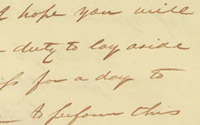 I hope you will
duty to lay aside
for a day to
to perform this